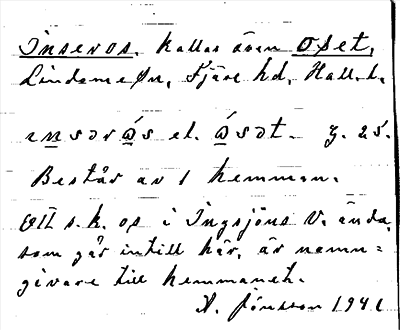 Inseros. Kallas även Oset,
Lindome sn, Fjäre hd, Hall. l.
ınsərós el. ósət. g. 25.
Består av 1 hemman.
Ett s.k. os i Ingsjöns V. ända,
som går intill här, är namn=
givare till hemmanet.
A. Jönsson 1941